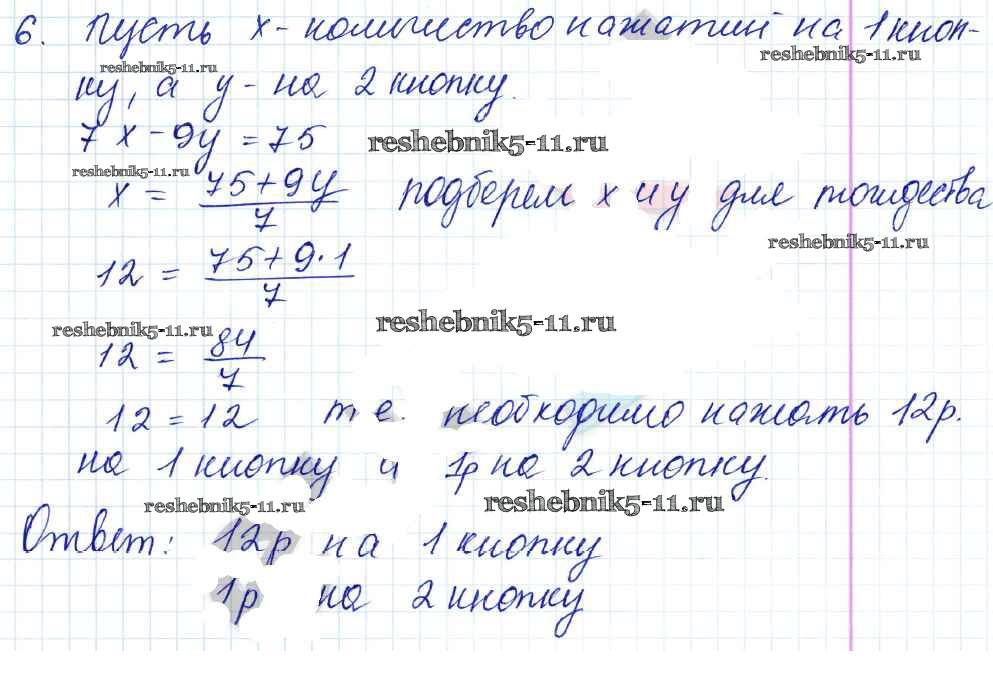 6. Пусть x - количество нажатий на 1 кноп-
reshebnik5-11.ru reshebnik5-11.ru
ку, а y - на 2 кнопку.
7x - 9y = 75 reshebnik5-11.ru
reshebnik5-11.ru
x = (75+9y)/7 подберем x и y для тождества
reshebnik5-11.ru
12 = (75+9·1)/7
reshebnik5-11.ru reshebnik5-11.ru
12 = 84/7
12 = 12 т.е. необходимо нажать 12р.
на 1 кнопку и 1р на 2 кнопку.
reshebnik5-11.ru reshebnik5-11.ru
Ответ: 12р на 1 кнопку
1р на 2 кнопку